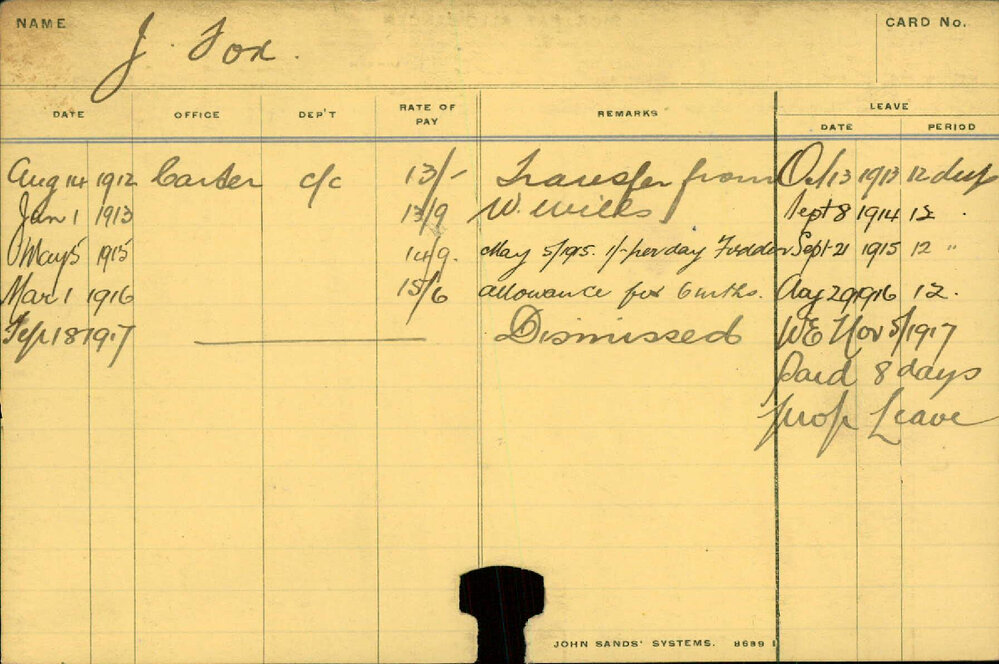 NAME J. Fox. CARD No.
DATE OFFICE DEP'T RATE OF PAY REMARKS LEAVE
DATE PERIOD
Aug 14 1912 Carter c/c 13/- Transfer from Oct 13 1913 12 days
Jan 1 1913 13/9 W. Wills Sept 8 1914 12 "
May 5 1915 14/9. May 5/1915. 1/- per day Fodder Sept 21 1915 12 "
Mar 1 1916 15/6 allowance for 6 mths. Aug 29 1916 12.
Sept 18 1917 Dismissed WE Nov 5/1917
Paid 8 days
prop Leave
JOHN SANDS' SYSTEMS. 8689 1